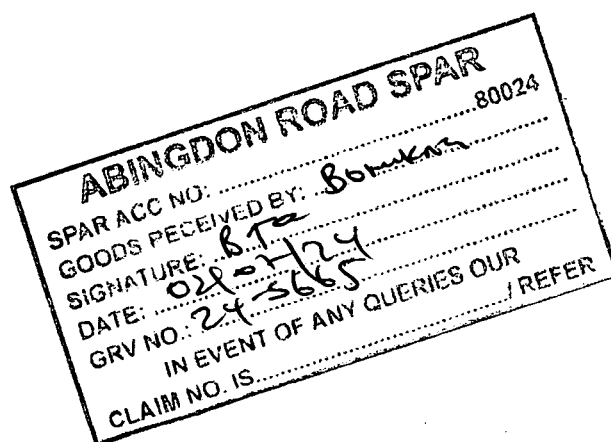 ABINGDON ROAD SPAR
SPAR ACC NO: .................... 80024
GOODS RECEIVED BY: ....................
SIGNATURE: B ....................
DATE: 02/07/24
GRV NO.: 24-5665
IN EVENT OF ANY QUERIES OUR
CLAIM NO. IS ..................../ REFER